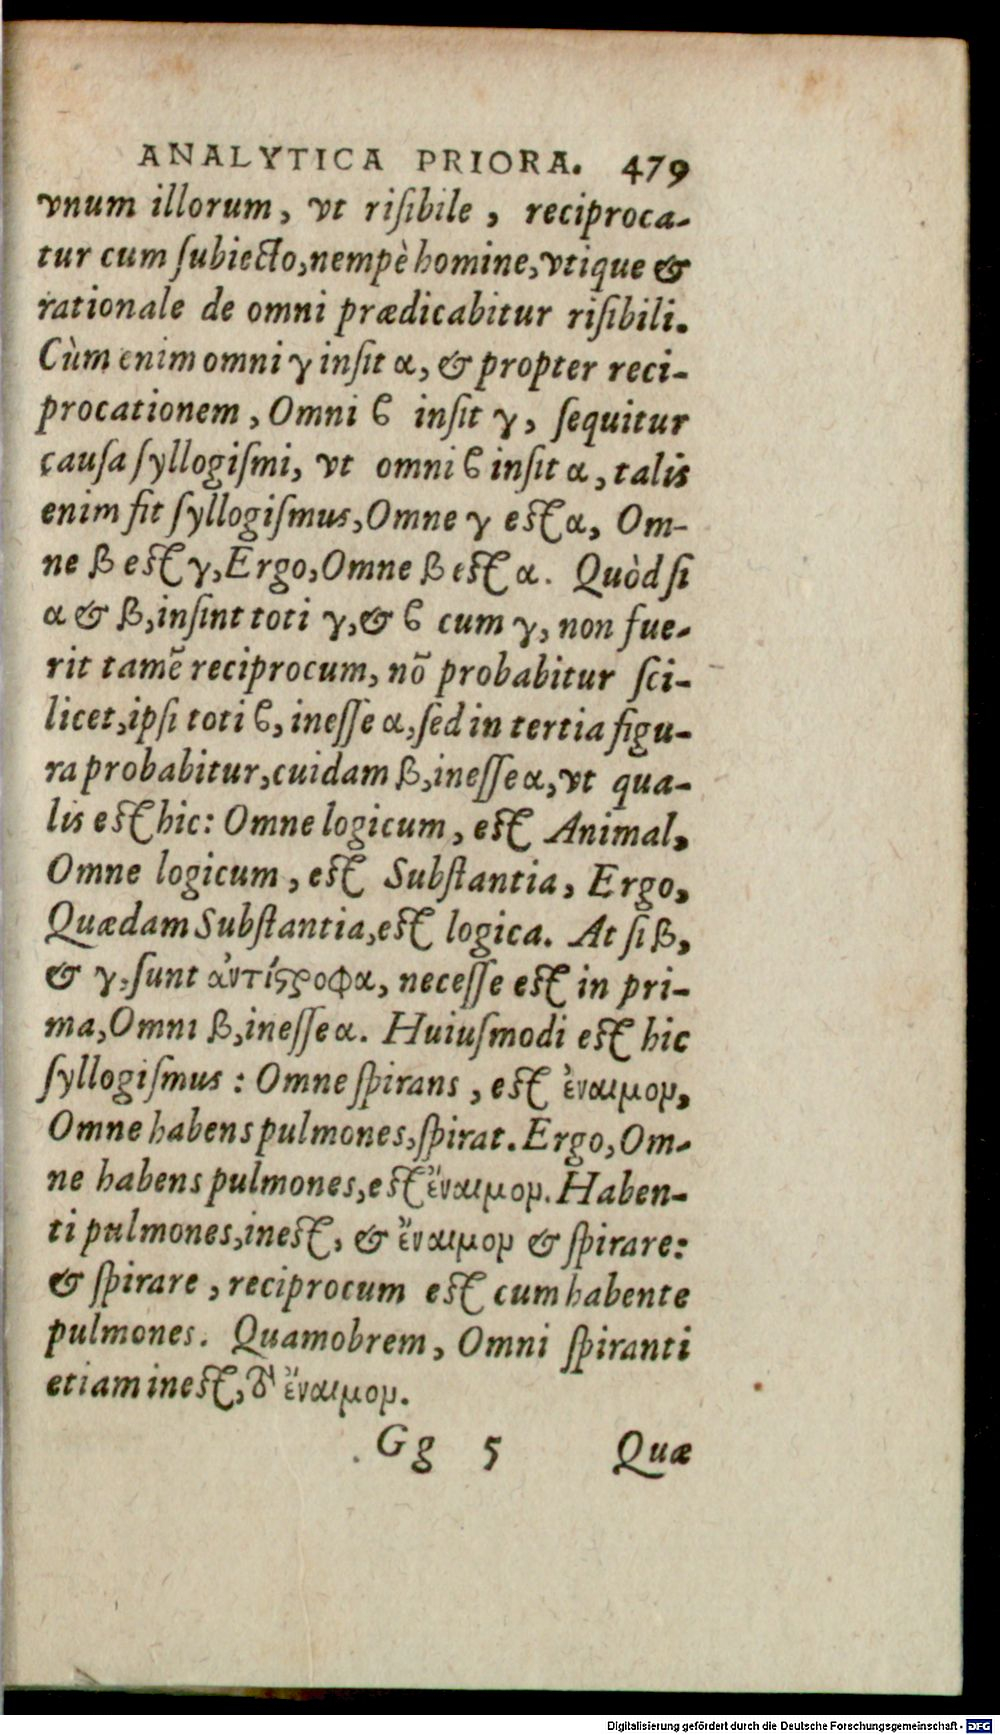 ANALYTICA PRIORA. 479
vnum illorum, vt risibile, reciproca-
tur cum subiecto, nempè homine, vtique &
rationale de omni prædicabitur risibili.
Cùm enim omni γ insit α, & propter reci-
procationem, Omni ϐ insit γ, sequitur
causa syllogismi, vt omni ϐ insit α, talis
enim fit syllogismus, Omne γ est α, Om-
ne β est γ, Ergo, Omne β est α. Quòd si
α & β, insint toti γ, & ϐ cum γ, non fue-
rit tamẽ reciprocum, nõ probabitur sci-
licet, ipsi toti ϐ, inesse α, sed in tertia figu-
ra probabitur, cuidam β, inesse α, vt qua-
lis est hic: Omne logicum, est Animal,
Omne logicum, est Substantia, Ergo,
Quædam Substantia, est logica. At si β,
& γ, sunt ἀντίϛροφα, necesse est in pri-
ma, Omni β, inesse α. Huiusmodi est hic
syllogismus: Omne spirans, est ἔναιμον,
Omne habens pulmones, spirat. Ergo, Om-
ne habens pulmones, est ἔναιμον. Haben-
ti pulmones, inest, & ἔναιμον & spirare:
& spirare, reciprocum est cum habente
pulmones. Quamobrem, Omni spiranti
etiam inest, τὸ ἔναιμον.
Gg 5 Quæ
Digitalisierung gefördert durch die Deutsche Forschungsgemeinschaft - DFG